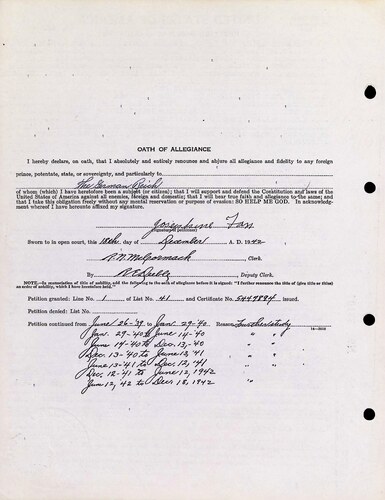 OATH OF ALLEGIANCE
I hereby declare, on oath, that I absolutely and entirely renounce and abjure all allegiance and fidelity to any foreign
prince, potentate, state, or sovereignty, and particularly to
The German Reich
of whom (which) I have heretofore been a subject (or citizen); that I will support and defend the Constitution and laws of the
United States of America against all enemies, foreign and domestic; that I will bear true faith and allegiance to the same; and
that I take this obligation freely without any mental reservation or purpose of evasion: SO HELP ME GOD. In acknowledg-
ment whereof I have hereunto affixed my signature.
Josephine
Sworn to in open court, this 18th day of December, A. D. 1942
McCormack, Clerk.
By, Deputy Clerk.
NOTE.—In renunciation of title of nobility, add the following to the oath of allegiance before it is signed: "I further renounce the title of (give title or titles)
an order of nobility, which I have heretofore held."
Petition granted: Line No. 1 of List No. 41 and Certificate No. 5449884 issued.
Petition denied: List No.
Petition continued from June 26-'39 to Jan. 29-'40 Reason Further study
Jan. 29-'40 to June 14-'40 " "
June 14-'40 to Dec. 13,-'40 " "
Dec. 13-'40 to June 13, '41 " "
June 13-'41 to Dec. 12, '41 " "
Dec. 12-'41 to June 12, 1942 "
June 12, '42 to Dec. 18, 1942 "